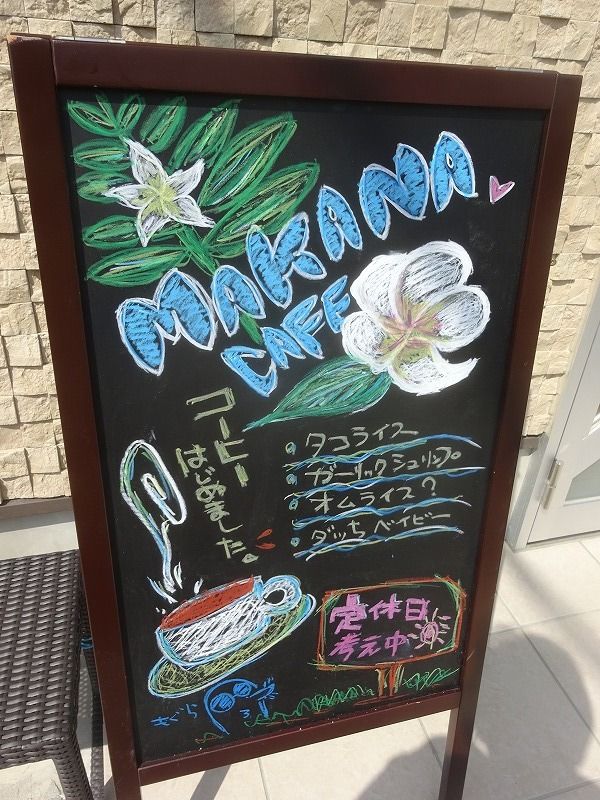 MAKANA
CAFE
コーヒー
はじめました。
タコライス
ガーリックシュリンプ。
オムライス？
ダッちベイビー
定休日
考え中
もぐら